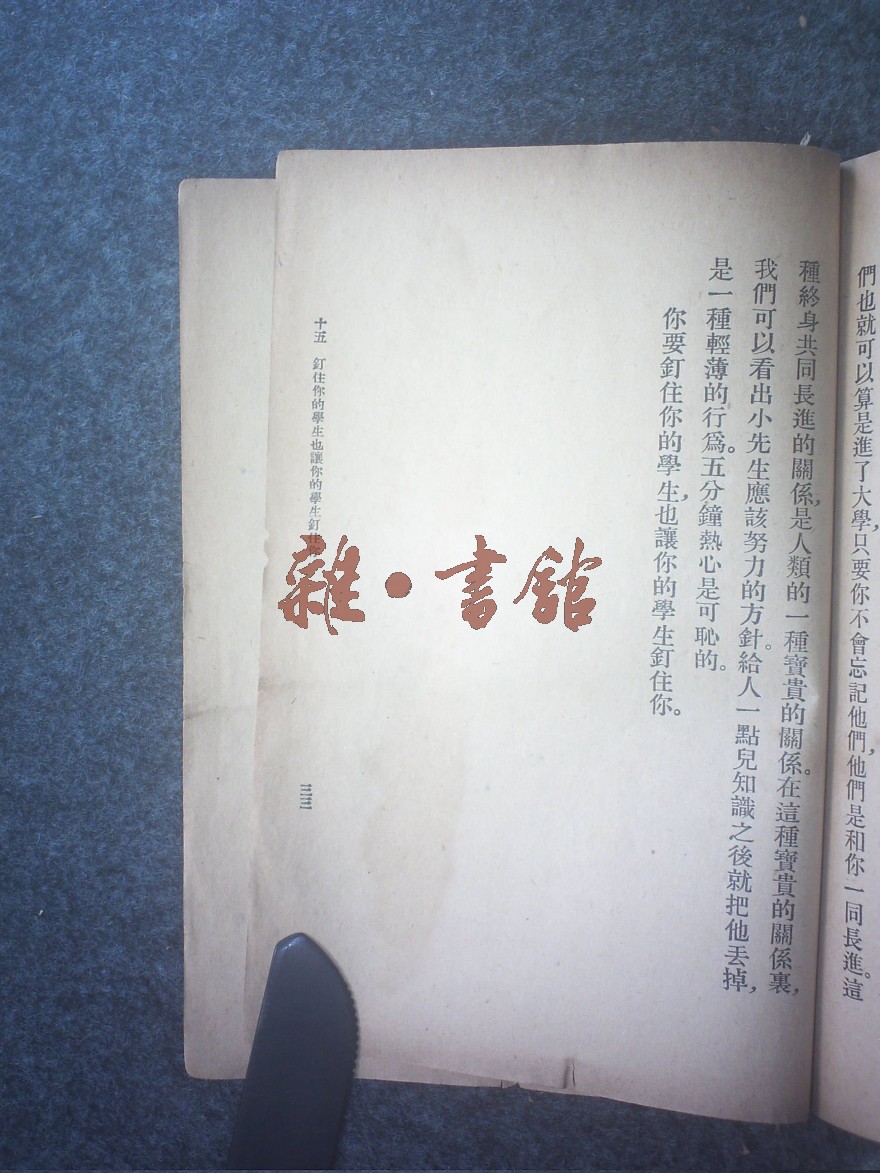 們也就可以算是進了大學,只要你不會忘記他們,他們是和你一同長進。這
種終身共同長進的關係,是人類的一種寶貴的關係。在這種寶貴的關係裏,
我們可以看出小先生應該努力的方針。給人一點兒知識之後就把他丟掉,
是一種輕薄的行爲。五分鐘熱心是可恥的。
你要釘住你的學生,也讓你的學生釘住你。
十五 釘住你的學生也讓你的學生釘住你
三三
雜·書館